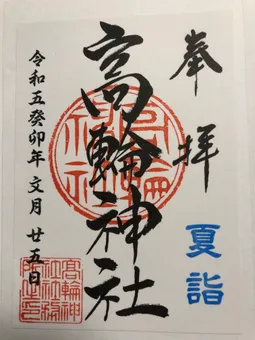 奉拝
夏詣
高輪神社
令和五癸卯年 文月 廿五日
高輪神
社社務
所之印